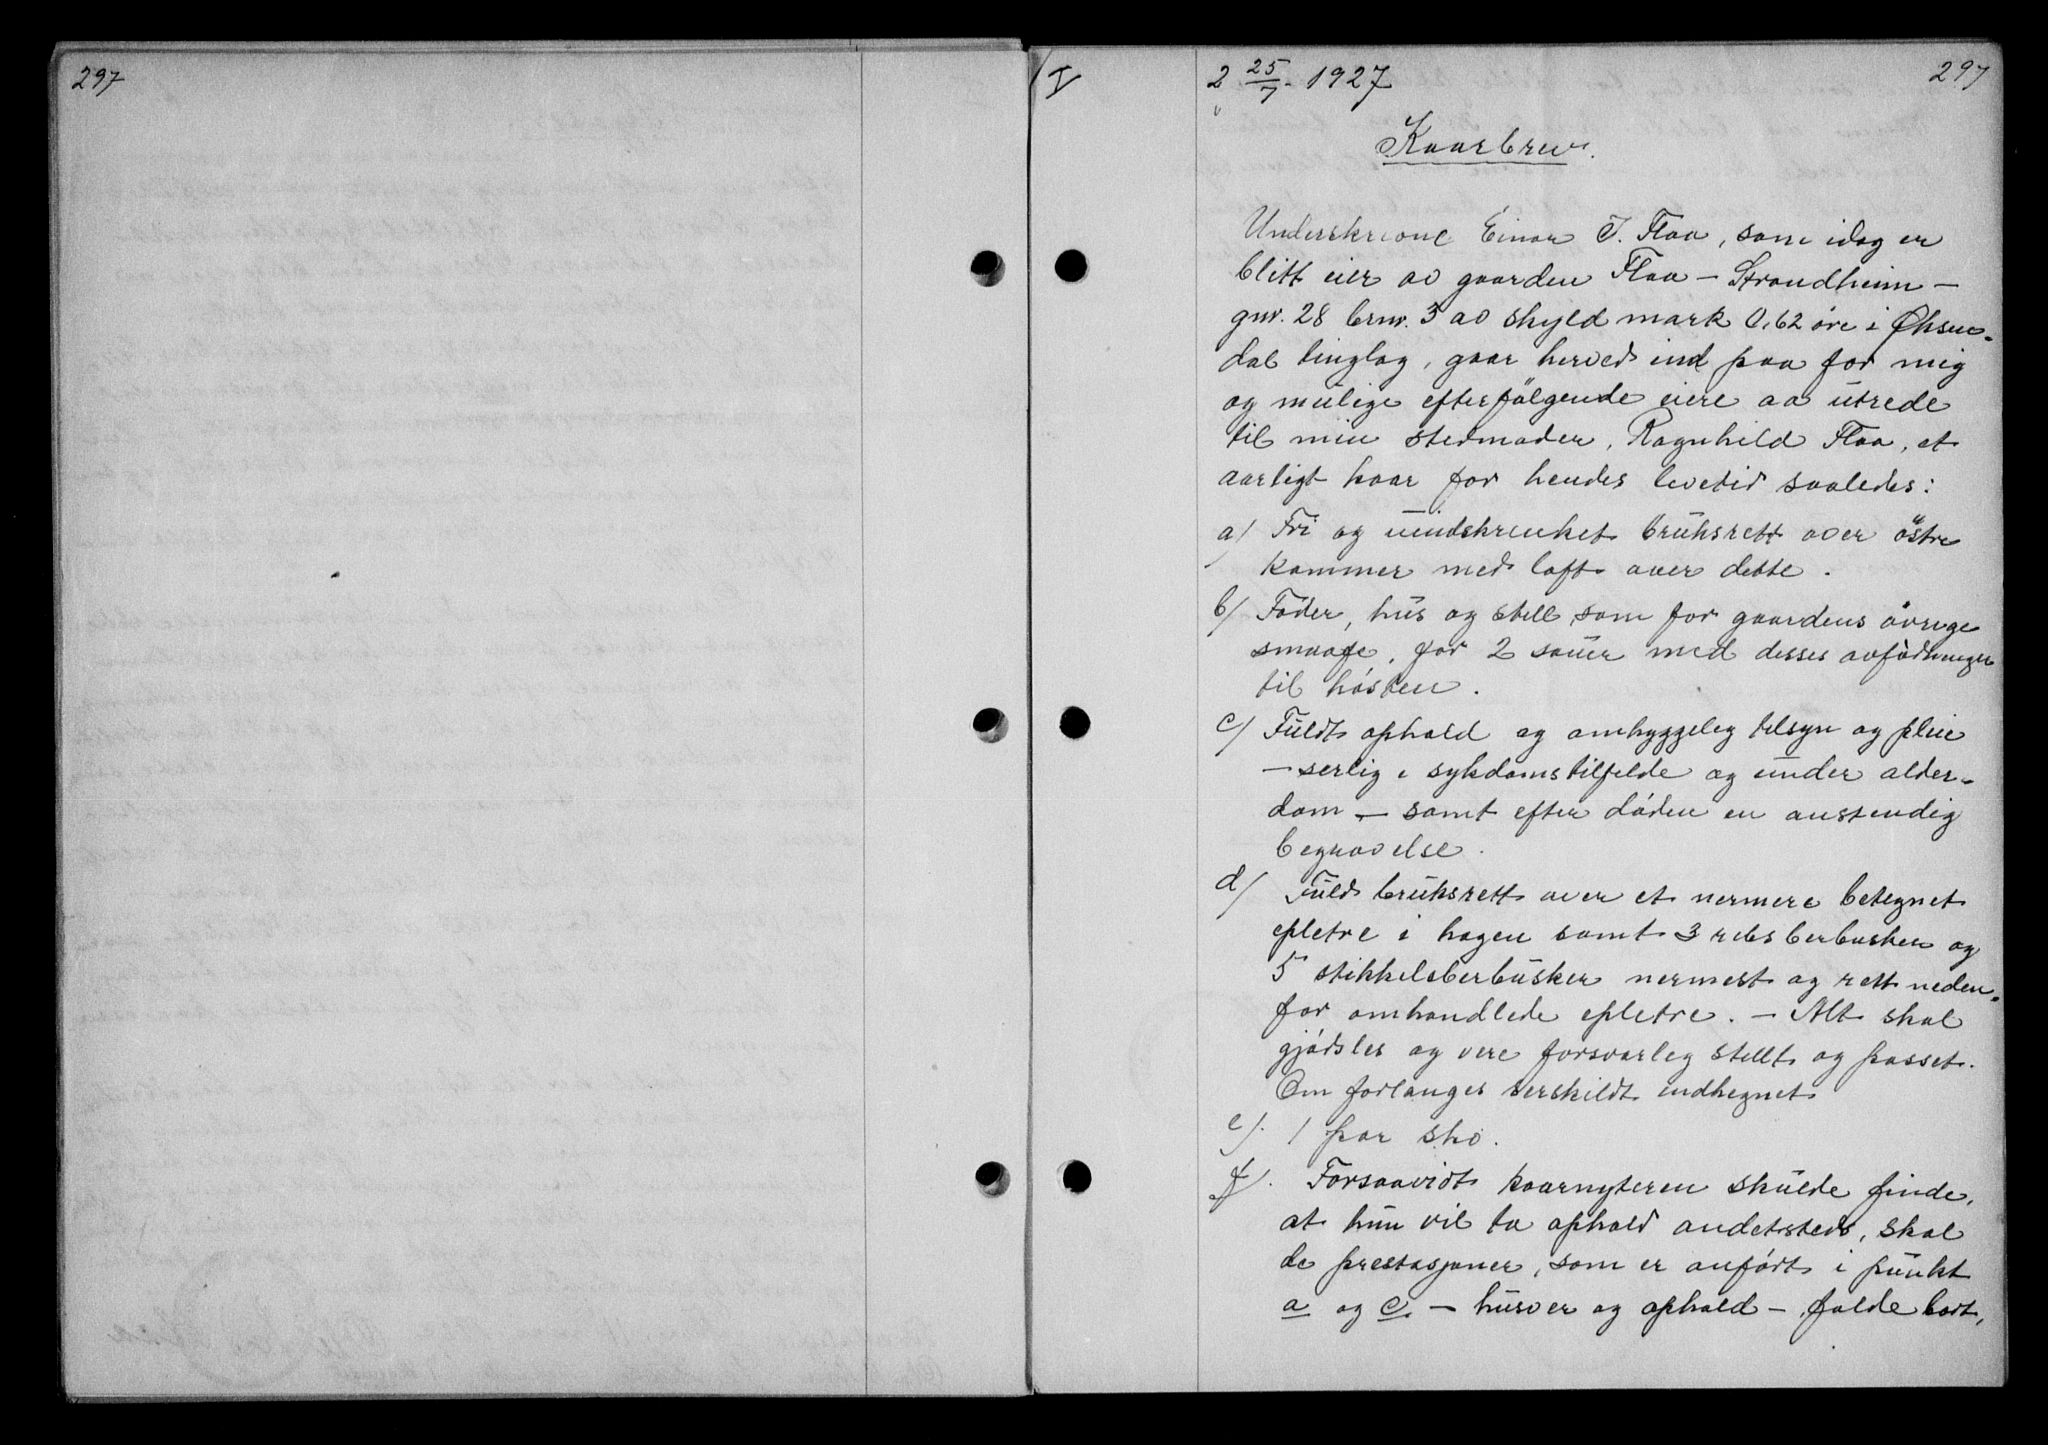 297
I
2 25/7 - 1927
297
Kaarbrev.
Underskrevne Einar J. Flaa, som idag er
blitt eier av gaarden Flaa - Strandheim -
gnr. 28 brnr. 3 av skyld mark 0,62 øre i Øksen-
dal tinglag, gaar herved ind paa for mig
og mulige efterfølgende eiere aa utrede
til min stedmoder, Ragnhild Flaa, et
aarligt kaar for hendes levetid saaledes:
a/ Fri og uindskrenket bruksrett over østre
kammer med loft over dette.
b/ Foder, hus og stell som for gaardens øvrige
smaafe, for 2 sauer med desses avfødninger
til høsten.
c/ Fuldt ophold og omhyggelig tilsyn og pleie
- serlig i sykdomstilfelde og under alder-
dom - samt efter døden en anstendig
begravelse.
d/ Fuld bruksrett over et nermere betegnet
epletre i hagen samt 3 ribsberbusker og
5 stikkelsberbusker nermest og rett neden-
for omhandlede epletre. - Alt skal
gjødsles og vere forsvarleg stellt og passet.
Om forlanges serskildt indhegnet
e/. 1 par sko.
f/. Forsaavidt kaarnyteren skulde finde,
at hun vil ta ophold andetsteds, skal
de prestasjoner, som er anført i punkt
a og c. - husver og ophold - falde bort,